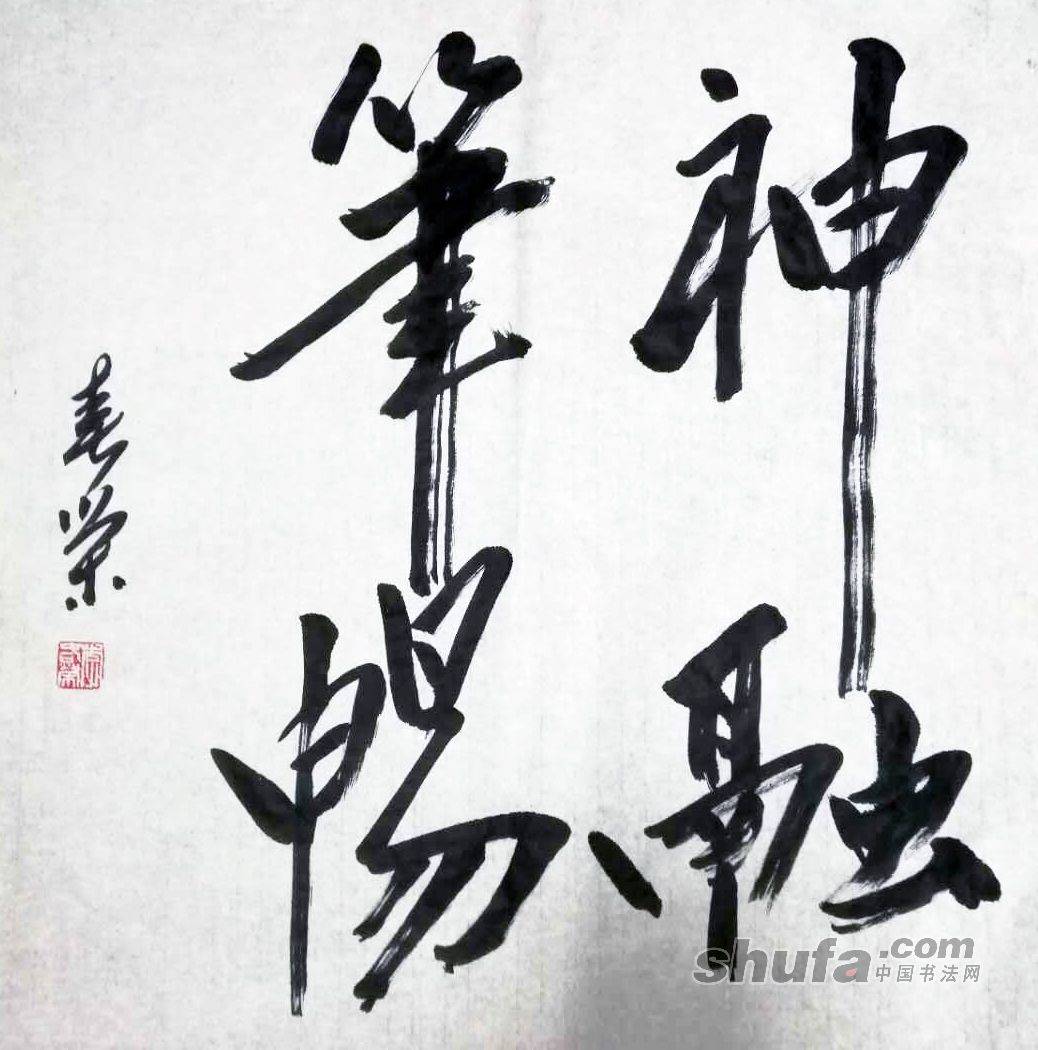 神融
筆暢
春荣
shufa.com
中国书法网